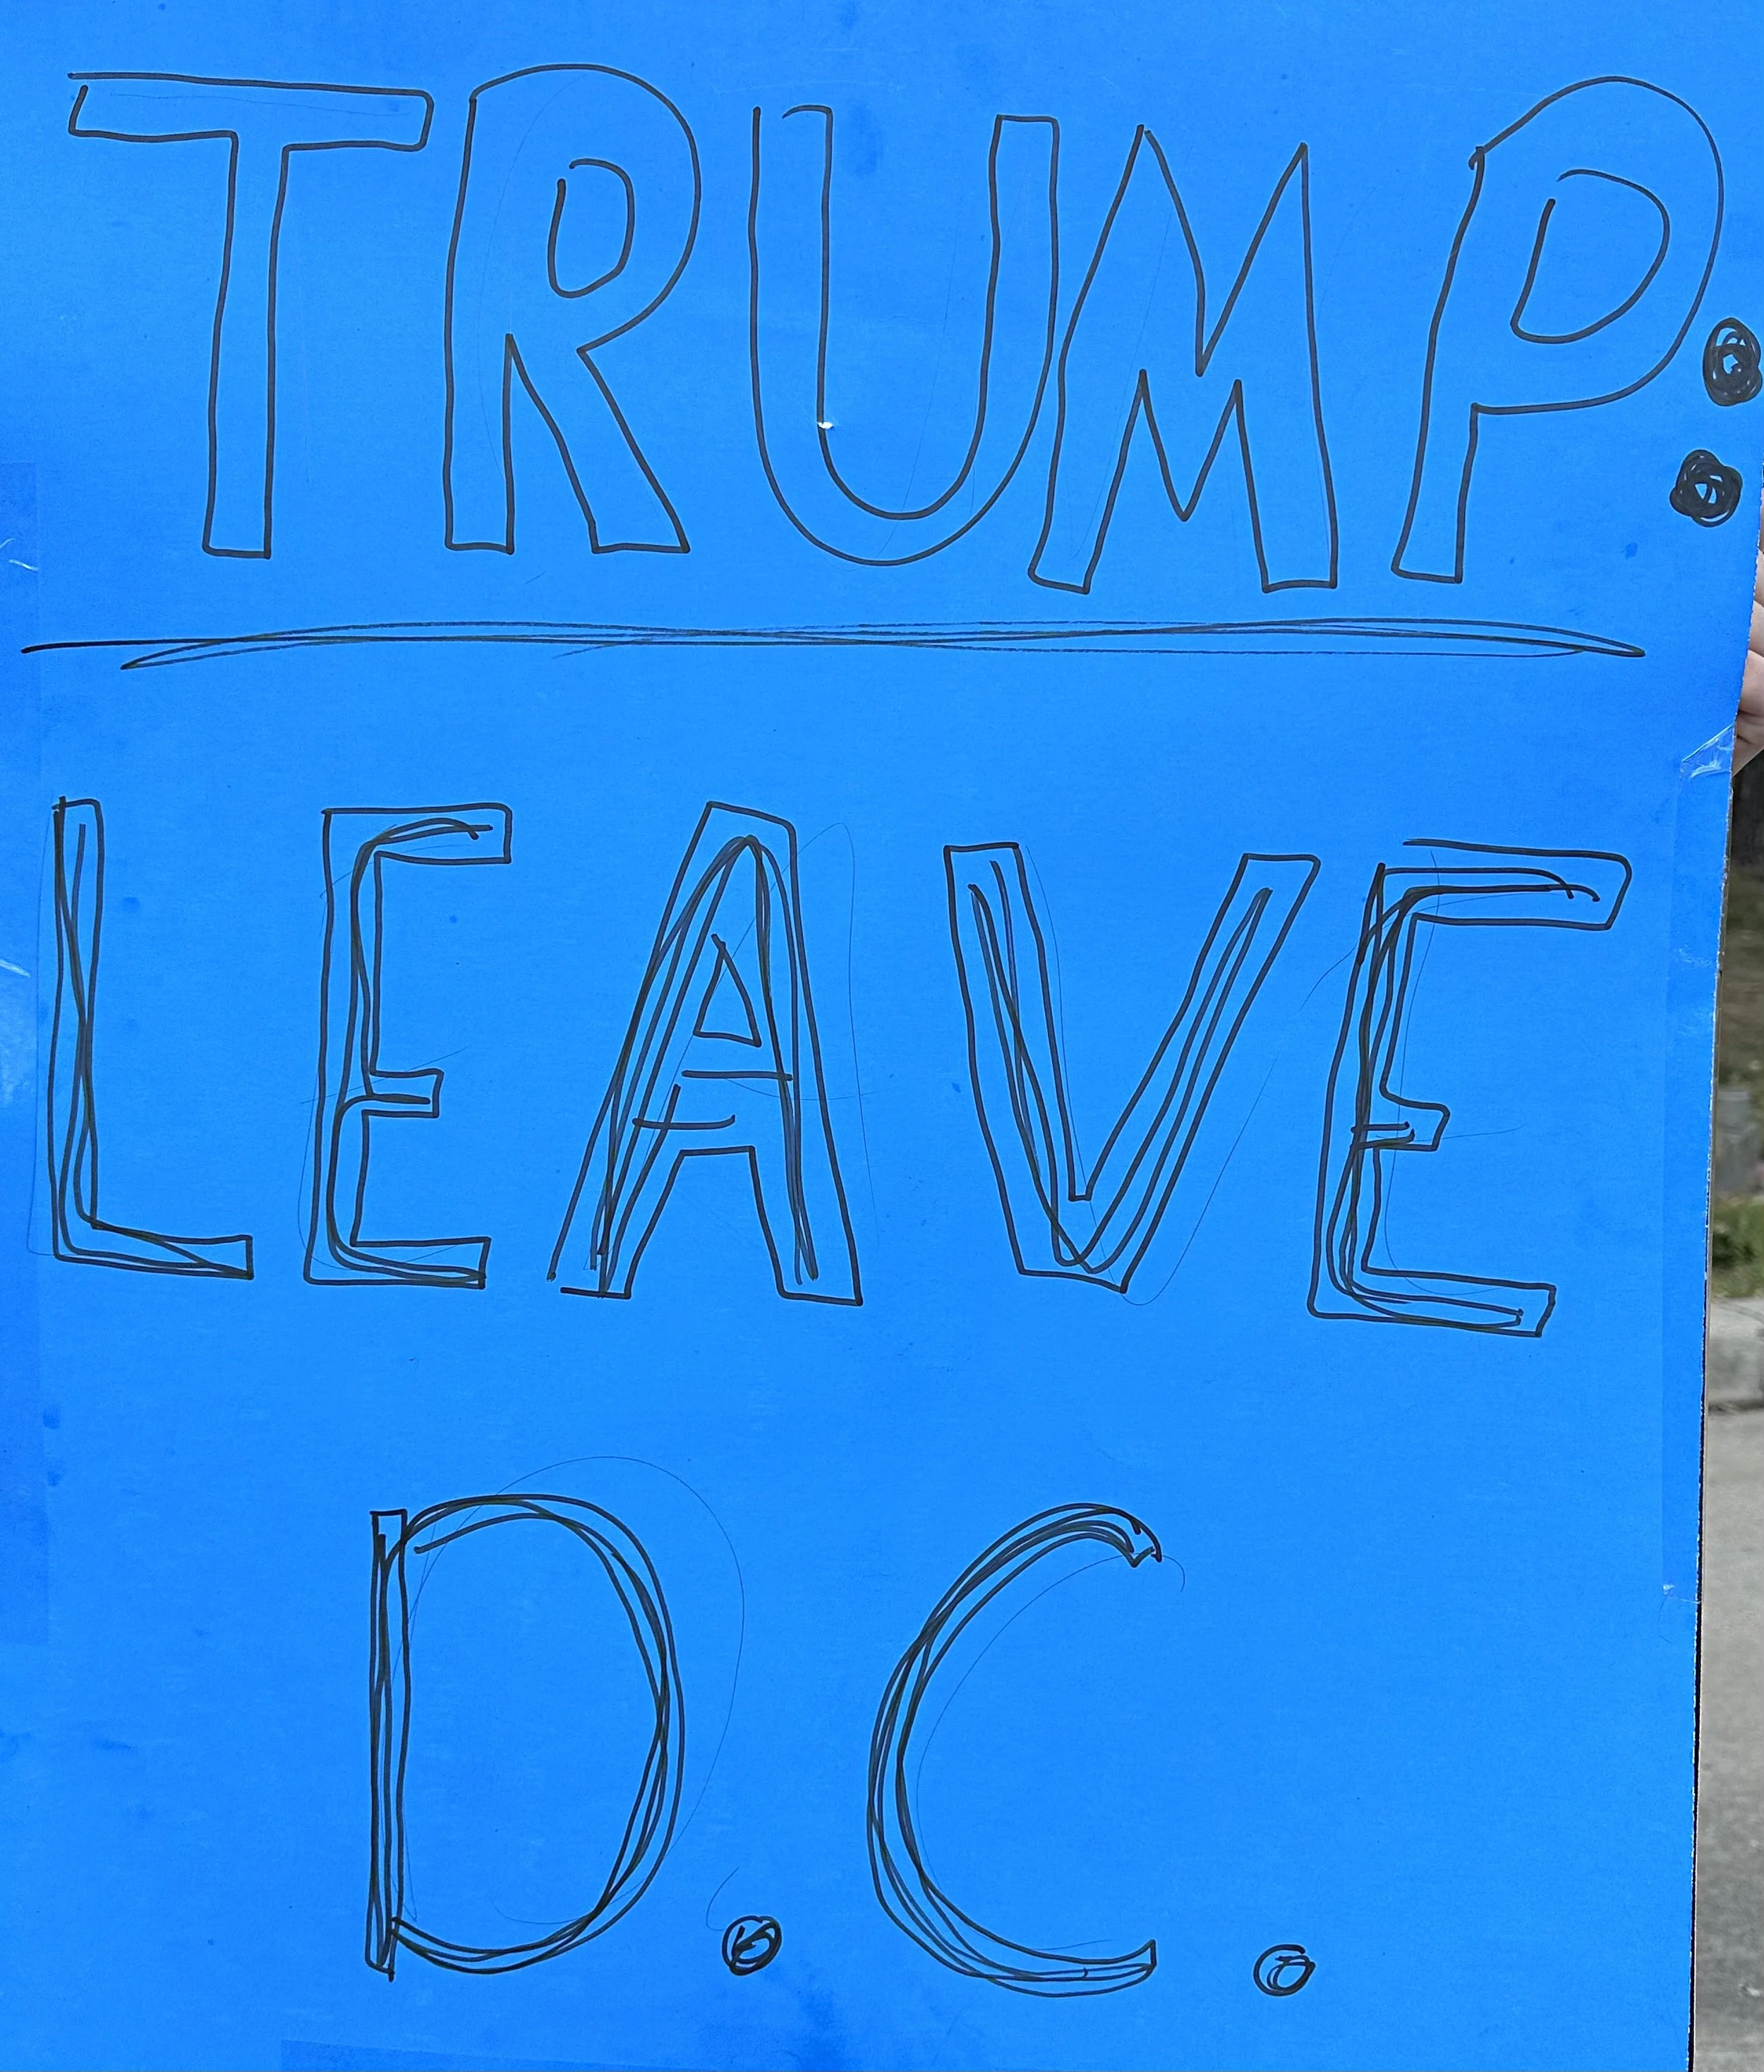 TRUMP:
LEAVE
D.C.